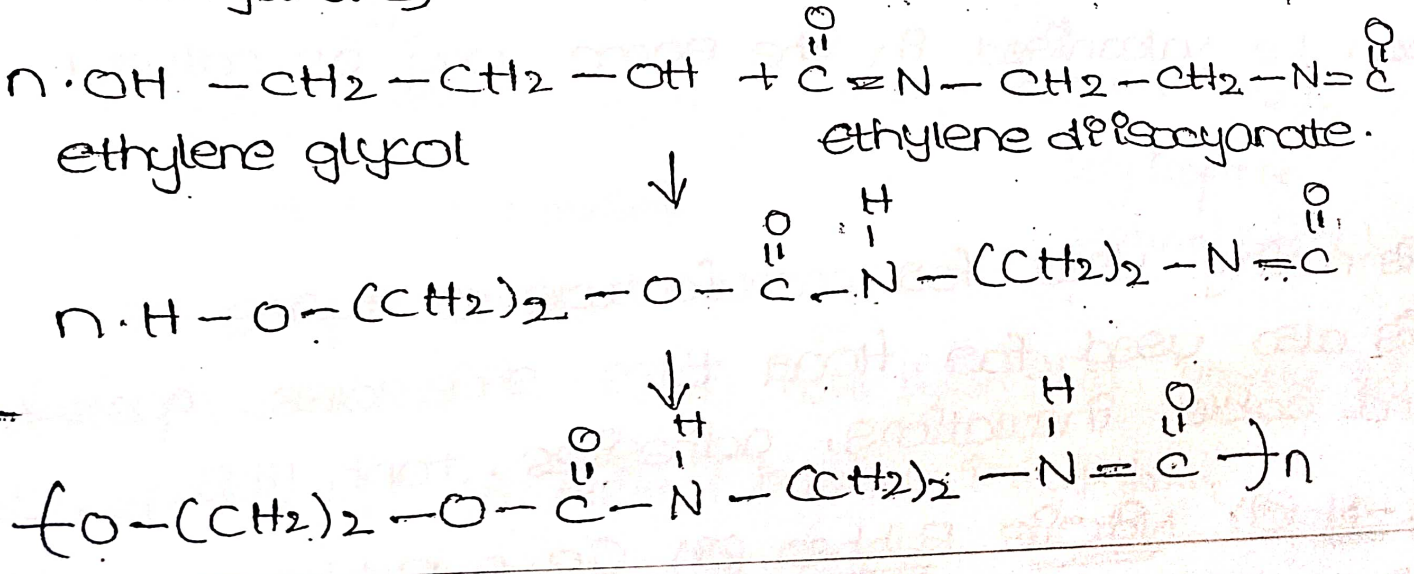 O O
|| ||
n. OH - CH2 - CH2 - OH + C = N - CH2 - CH2 - N = C
ethylene glycol ethylene diisocyanate.
↓
O H O
|| | ||
n. H - O - (CH2)2 - O - C - N - (CH2)2 - N = C
↓
O H H O
|| | | ||
{ O - (CH2)2 - O - C - N - (CH2)2 - N = C }n